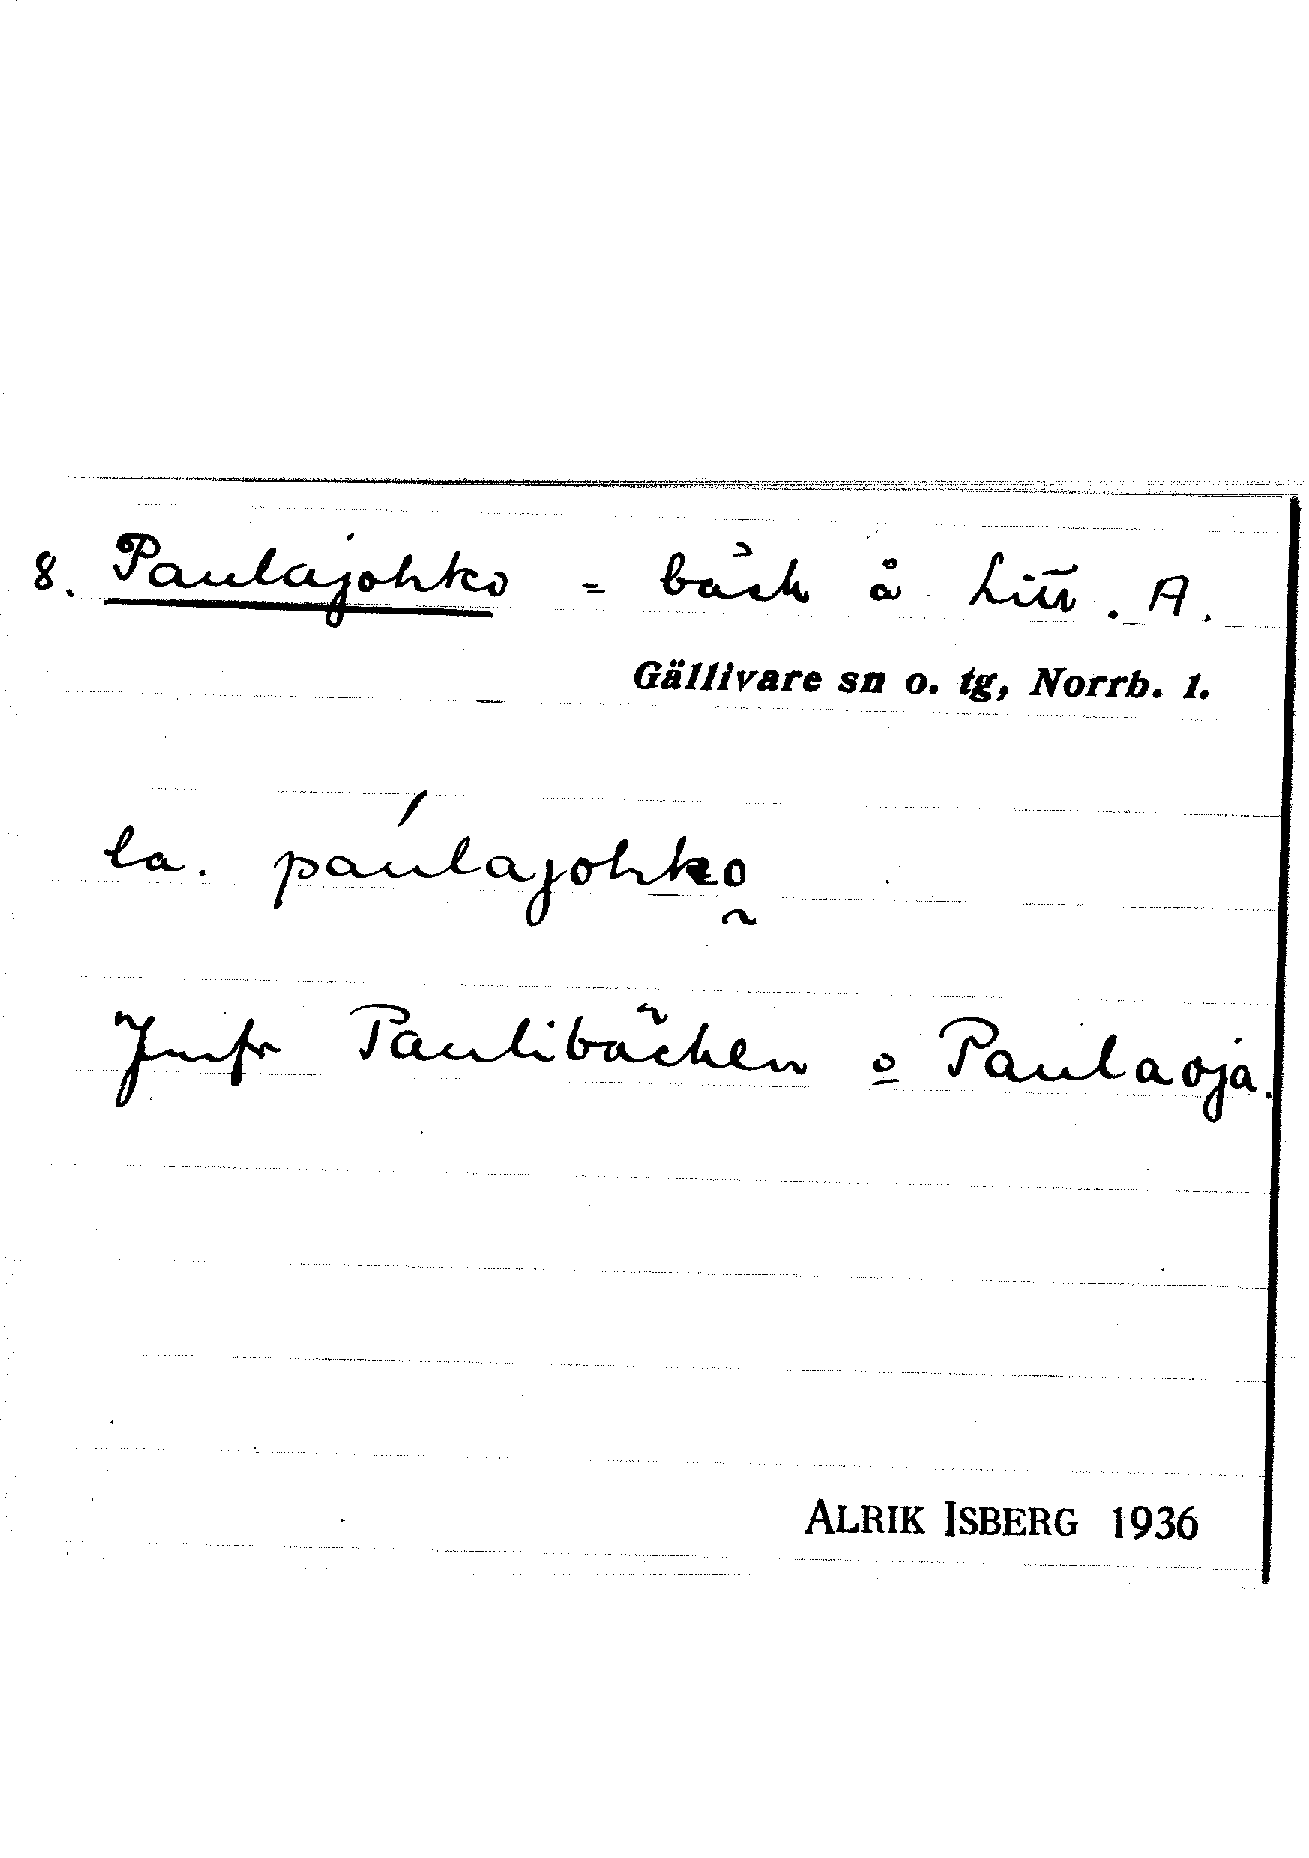 8. Paulajohko = bäck å Litt. A.
Gällivare sn o. tg, Norrb. l.
la. páulajohko̰
Jmfr Paulibäcken o Paulaoja.
ALRIK ISBERG 1936